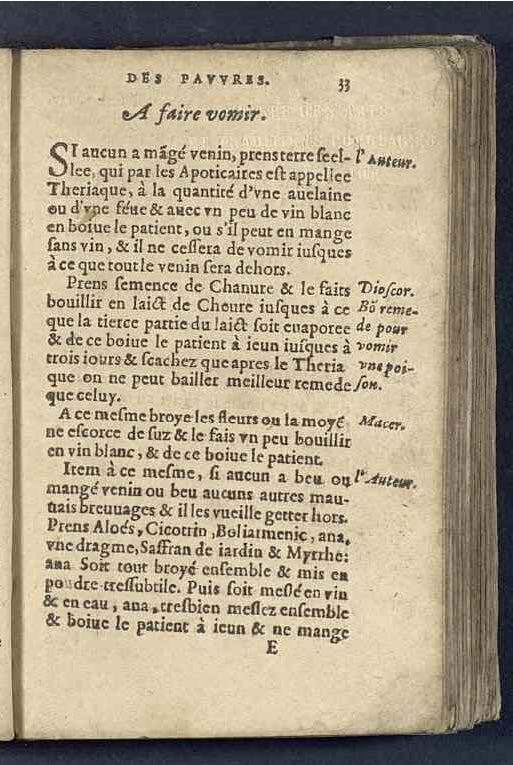 DES PAVVRES. 33
A faire vomir.
SI aucun a mãgé venin, prens terre seel- l'Auteur.
lee, qui par les Apoticaires est appellee
Theriaque, à la quantité d'vne auelaine
ou d'vne féue & auec vn peu de vin blanc
en boiue le patient, ou s'il peut en mange
sans vin, & il ne cessera de vomir iusques
à ce que tout le venin sera dehors.
Prens semence de Chanure & le faits Dioscor.
bouillir en laict de Cheure iusques à ce Bõ reme-
que la tierce partie du laict soit euaporee de pour
& de ce boiue le patient à ieun iusques à vomir
trois iours & scachez que apres le Theria vne poi-
que on ne peut bailler meilleur remede son.
que celuy.
A ce mesme broye les fleurs ou la moyé Macer.
ne escorce de suz & le fais vn peu bouillir
en vin blanc, & de ce boiue le patient.
Item à ce mesme, si aucun a beu ou l'Auteur.
mangé venin ou beu aucuns autres mau-
uais breuuages & il les vueille getter hors.
Prens Aloés, Cicotrin, Boliarmenic, ana,
vne dragme, Saffran de iardin & Myrrhe:
ana Soit tout broyé ensemble & mis en
poudre tressubtile. Puis soit meslé en vin
& en eau, ana, tresbien meslez ensemble
& boiue le patient à ieun & ne mange
E